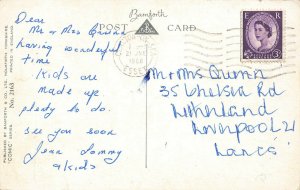 Bamforth
POST CARD
Dear
Mr & Mrs Quinn
having wonderful
time
Kids are
made up
plenty to do.
see you soon
Jean Tommy
& kids
Mr & Mrs Quinn
35 Chelsea Rd
Litherland
Liverpool 21
Lancs
E R
PUBLISHED BY BAMFORTH & CO. LTD., HOLMFIRTH, YORKSHIRE
PRINTED IN ENGLAND
"COMIC" SERIES No. 2163